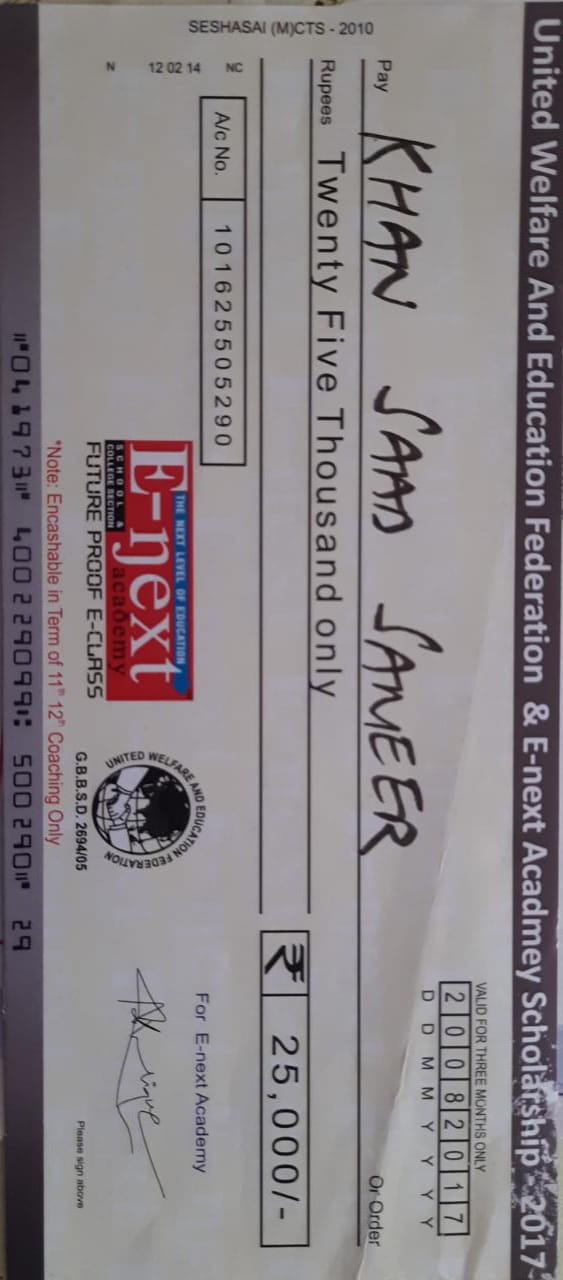 United Welfare And Education Federation & E-next Acadmey Scholarship - 2017
VALID FOR THREE MONTHS ONLY
2 0 0 8 2 0 1 7
D D M M Y Y Y Y
Pay KHAN SAAD SAMEER Or Order
Rupees Twenty Five Thousand only
₹ 25,000/-
SESHASAI (M)CTS - 2010
N 12 02 14 NC
A/c No. 101625505290
For E-next Academy
THE NEXT LEVEL OF EDUCATION
E-next
academy
SCHOOL &
COLLEGE SECTION
FUTURE PROOF E-CLASS
UNITED WELFARE AND EDUCATION FEDERATION
G.B.B.S.D. 2694/05
Please sign above
*Note: Encashable in Term of 11th 12th Coaching Only
⑈041973⑈ 400229099⑆ 500290⑈ 29